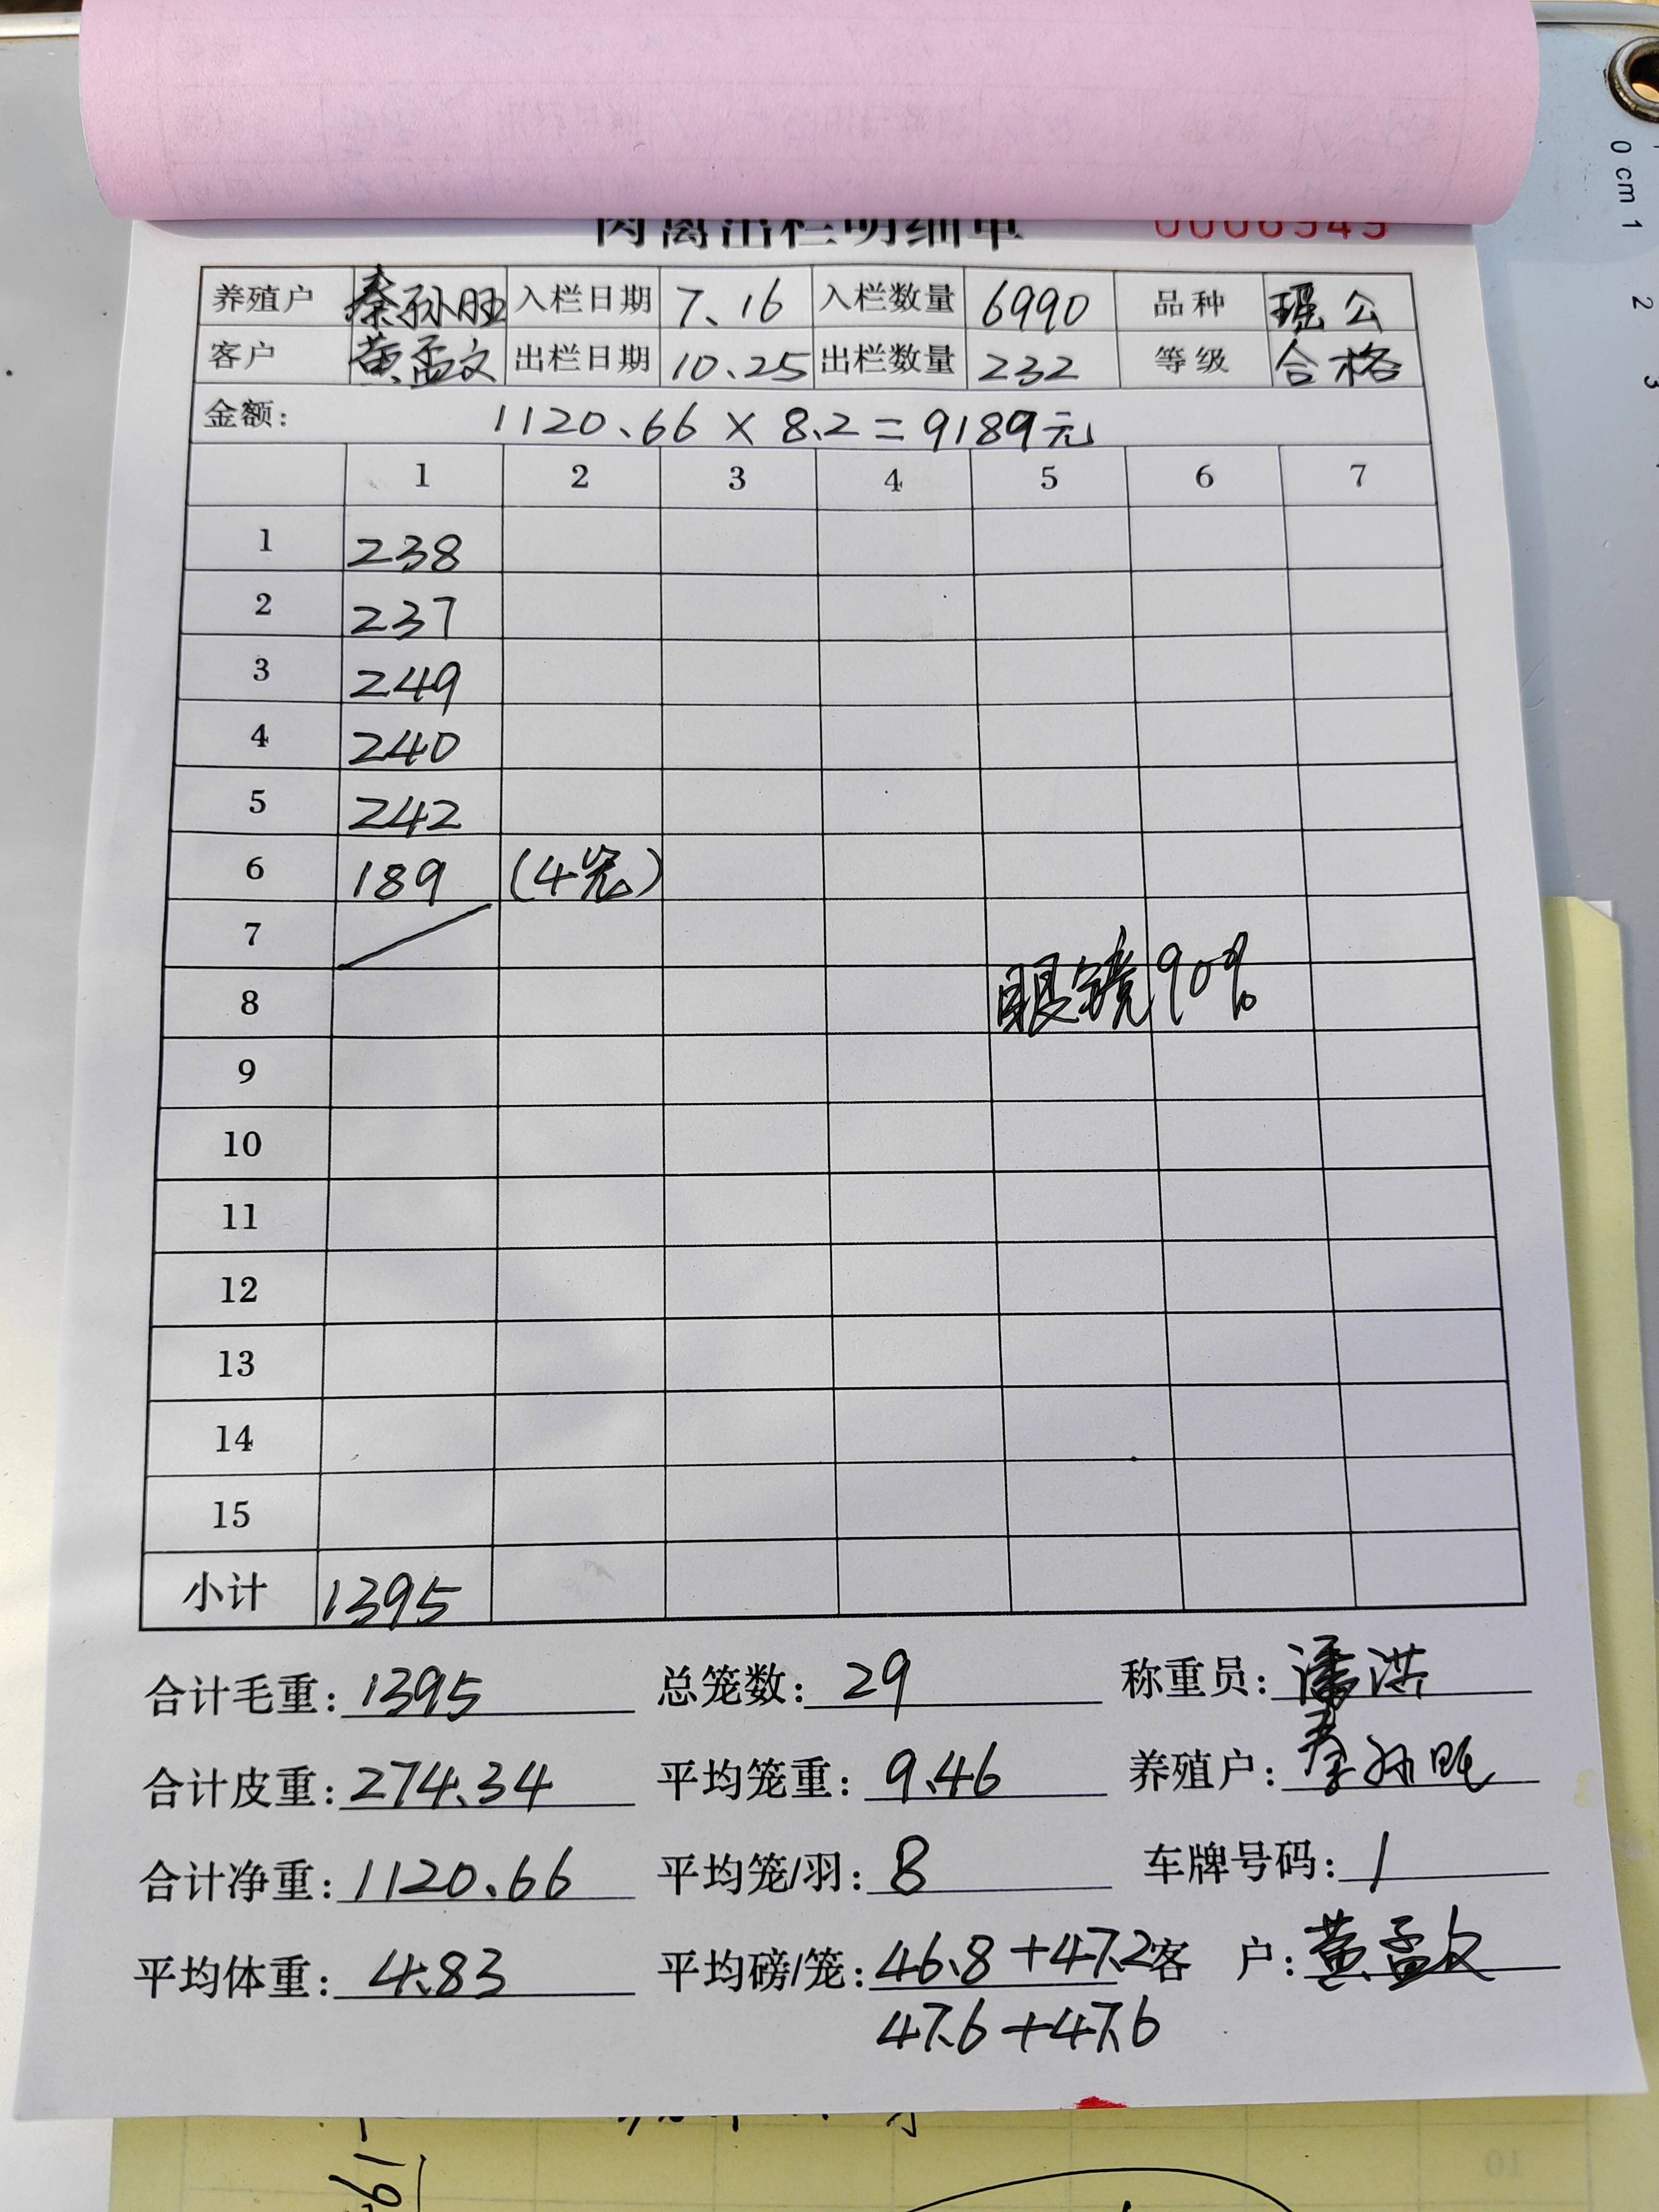 肉禽出栏明细单 0006949
养殖户 秦孙旺 入栏日期 7.16 入栏数量 6990 品种 瑶公
客户 黄孟文 出栏日期 10.25 出栏数量 232 等级 合格
金额: 1120.66 × 8.2 = 9189元
1 2 3 4 5 6 7
1 238
2 237
3 249
4 240
5 242
6 189 (4笼)
7
8 眼镜90%
9
10
11
12
13
14
15
小计 1395
合计毛重: 1395 总笼数: 29 称重员: 潘洪
合计皮重: 274.34 平均笼重: 9.46 养殖户: 秦孙旺
合计净重: 1120.66 平均笼/羽: 8 车牌号码: /
平均体重: 4.83 平均磅/笼: 46.8+47.2 客 户: 黄孟文
47.6+47.6
0 cm 1 2 3